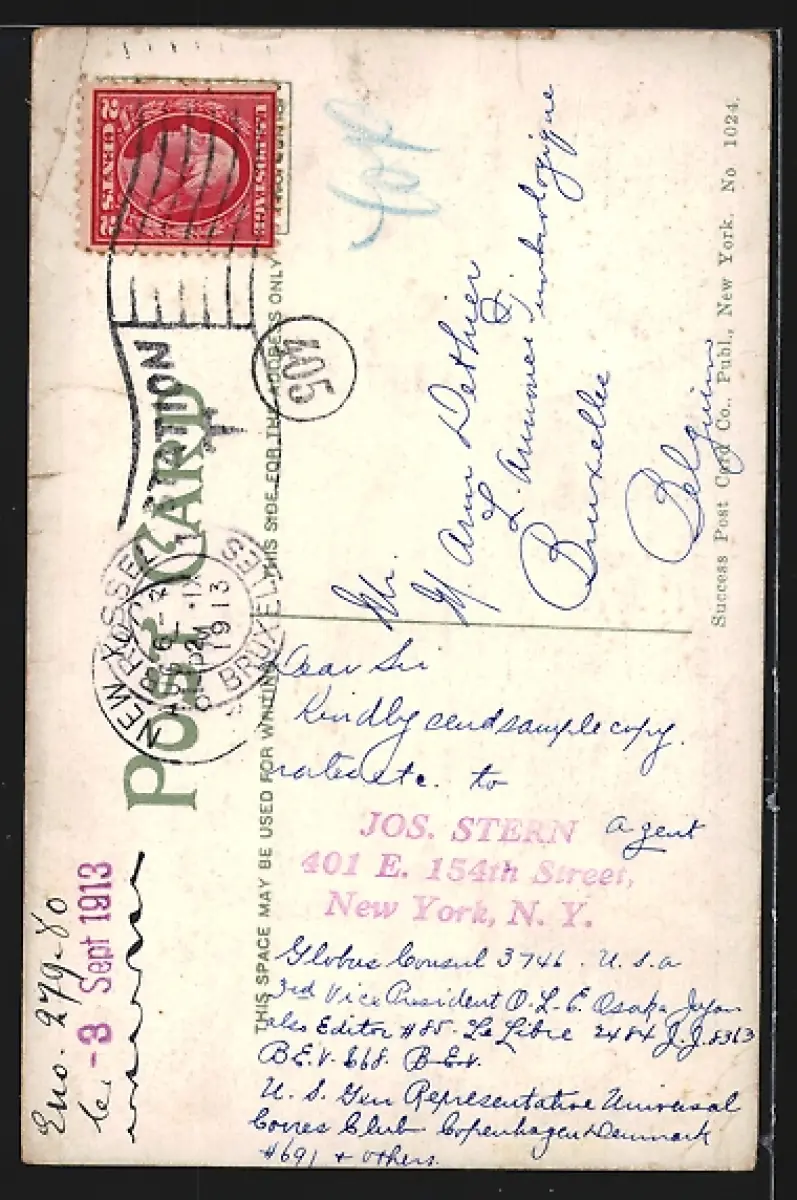 U.S. POSTAGE
2 CENTS 2
STATION
405
NEW YORK
AUG
1913
BRUSSEL
BRUXELLES
1913
POST CARD
THIS SPACE MAY BE USED FOR WRITING
THIS SIDE FOR THE ADDRESS ONLY
M. Arm Dethier
L. Annonce Timbrologique
Bruxelles
Belgium
Success Post Card Co., Publ., New York. No 1024.
Dear Sir
Kindly send sample copy.
rates etc. to
JOS. STERN agent
401 E. 154th Street,
New York, N. Y.
Globus Consul 3746. U.S.a
3rd Vice President O.L.E. Osaka Japan
also Editor #85. Le Libre 2484 J.J.8363
B.E.V. 668. B.E.V.
U. S. Gen Representative Universal
Corres Club Copenhagen Denmark
#691 + others.
Eno. 279-80
le, -3 Sept 1913